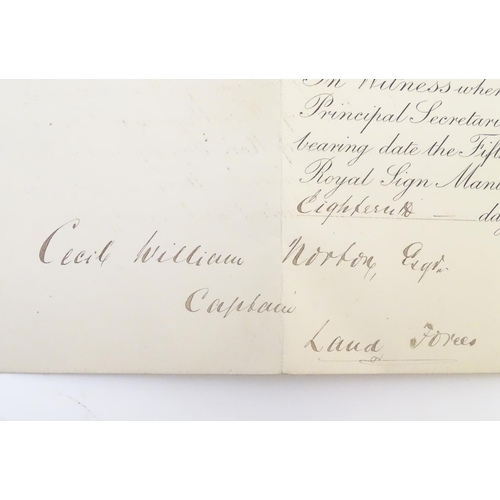 In Witness wher
Principal Secretari
bearing date the Fift
Royal Sign Manu
Eighteenth — da
Cecil William Norton, Esqr.
Captain
Land Forces